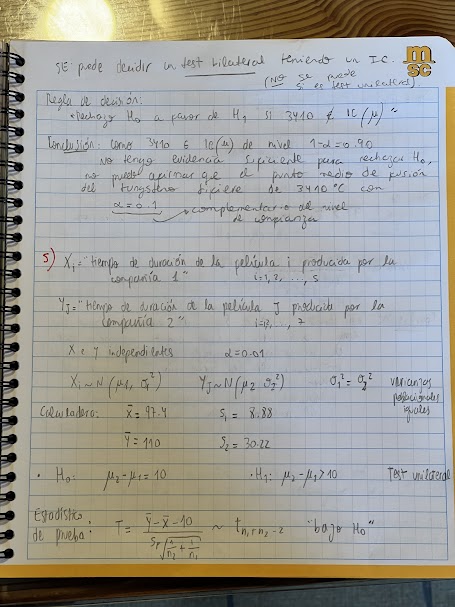 SE puede decidir un test bilateral teniendo un I.C.
(NO se puede
si es test unilateral).
msc
Regla de decisión:
"Rechazo H0 a favor de H1 si 3410 ∉ IC(μ)"
Conclusión: como 3410 ∈ IC(μ) de nivel 1-α=0.90
no tengo evidencia suficiente para rechazar H0,
no puedo afirmar que el punto medio de fusión
del tungsteno difiere de 3410 °C con
α = 0.1 → complementario al nivel
de confianza
5) Xi = "tiempo de duración de la película i producida por la
compañía 1" i=1, 2, ..., 5
YJ = "tiempo de duración de la película J producida por la
compañía 2" ..., 7
X e Y independientes α=0.01
Xi ~ N(μ1, σ1²) YJ ~ N(μ2, σ2²) σ1² = σ2² varianzas
poblacionales
iguales
Calculadora: x̄ = 97.4 S1 = 8.88
ȳ = 110 S2 = 30.22
• H0: μ2 - μ1 = 10 • H1: μ2 - μ1 > 10 Test unilateral
Estadístico
de prueba: T = (ȳ - x̄ - 10) / (Sp √(1/n2 + 1/n1)) ~ t n1+n2-2 "bajo H0"